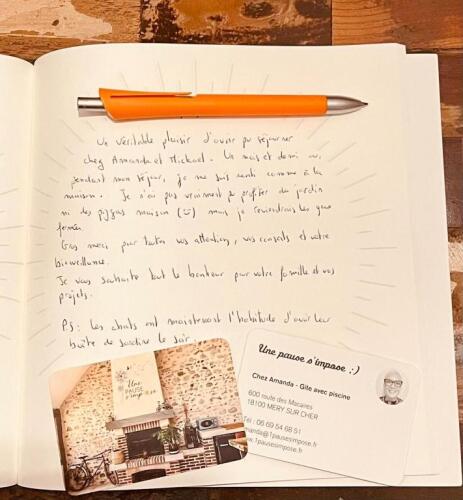 Un véritable plaisir d'avoir pu séjourner
chez Amanda et Mickael. Un mois et demi où,
pendant mon séjour, je me suis senti comme à la
maison. Je n'ai pas vraiment pu profiter du jardin
ni des pizzas maison (☺) mais je reviendrais les yeux
fermés.
Gros merci pour toutes vos attentions, vos conseils et votre
bienveillance.
Je vous souhaite tout le bonheur pour votre famille et vos
projets.
PS: les chats ont maintenant l'habitude d'avoir leur
boîte de sardine le soir.
Une
PAUSE
s'impose
Une pause s'impose :)
Chez Amanda - Gite avec piscine
600 route des Macaires
18100 MERY SUR CHER
Tél : 06 69 54 68 51
amanda@1pausesimpose.fr
www.1pausesimpose.fr